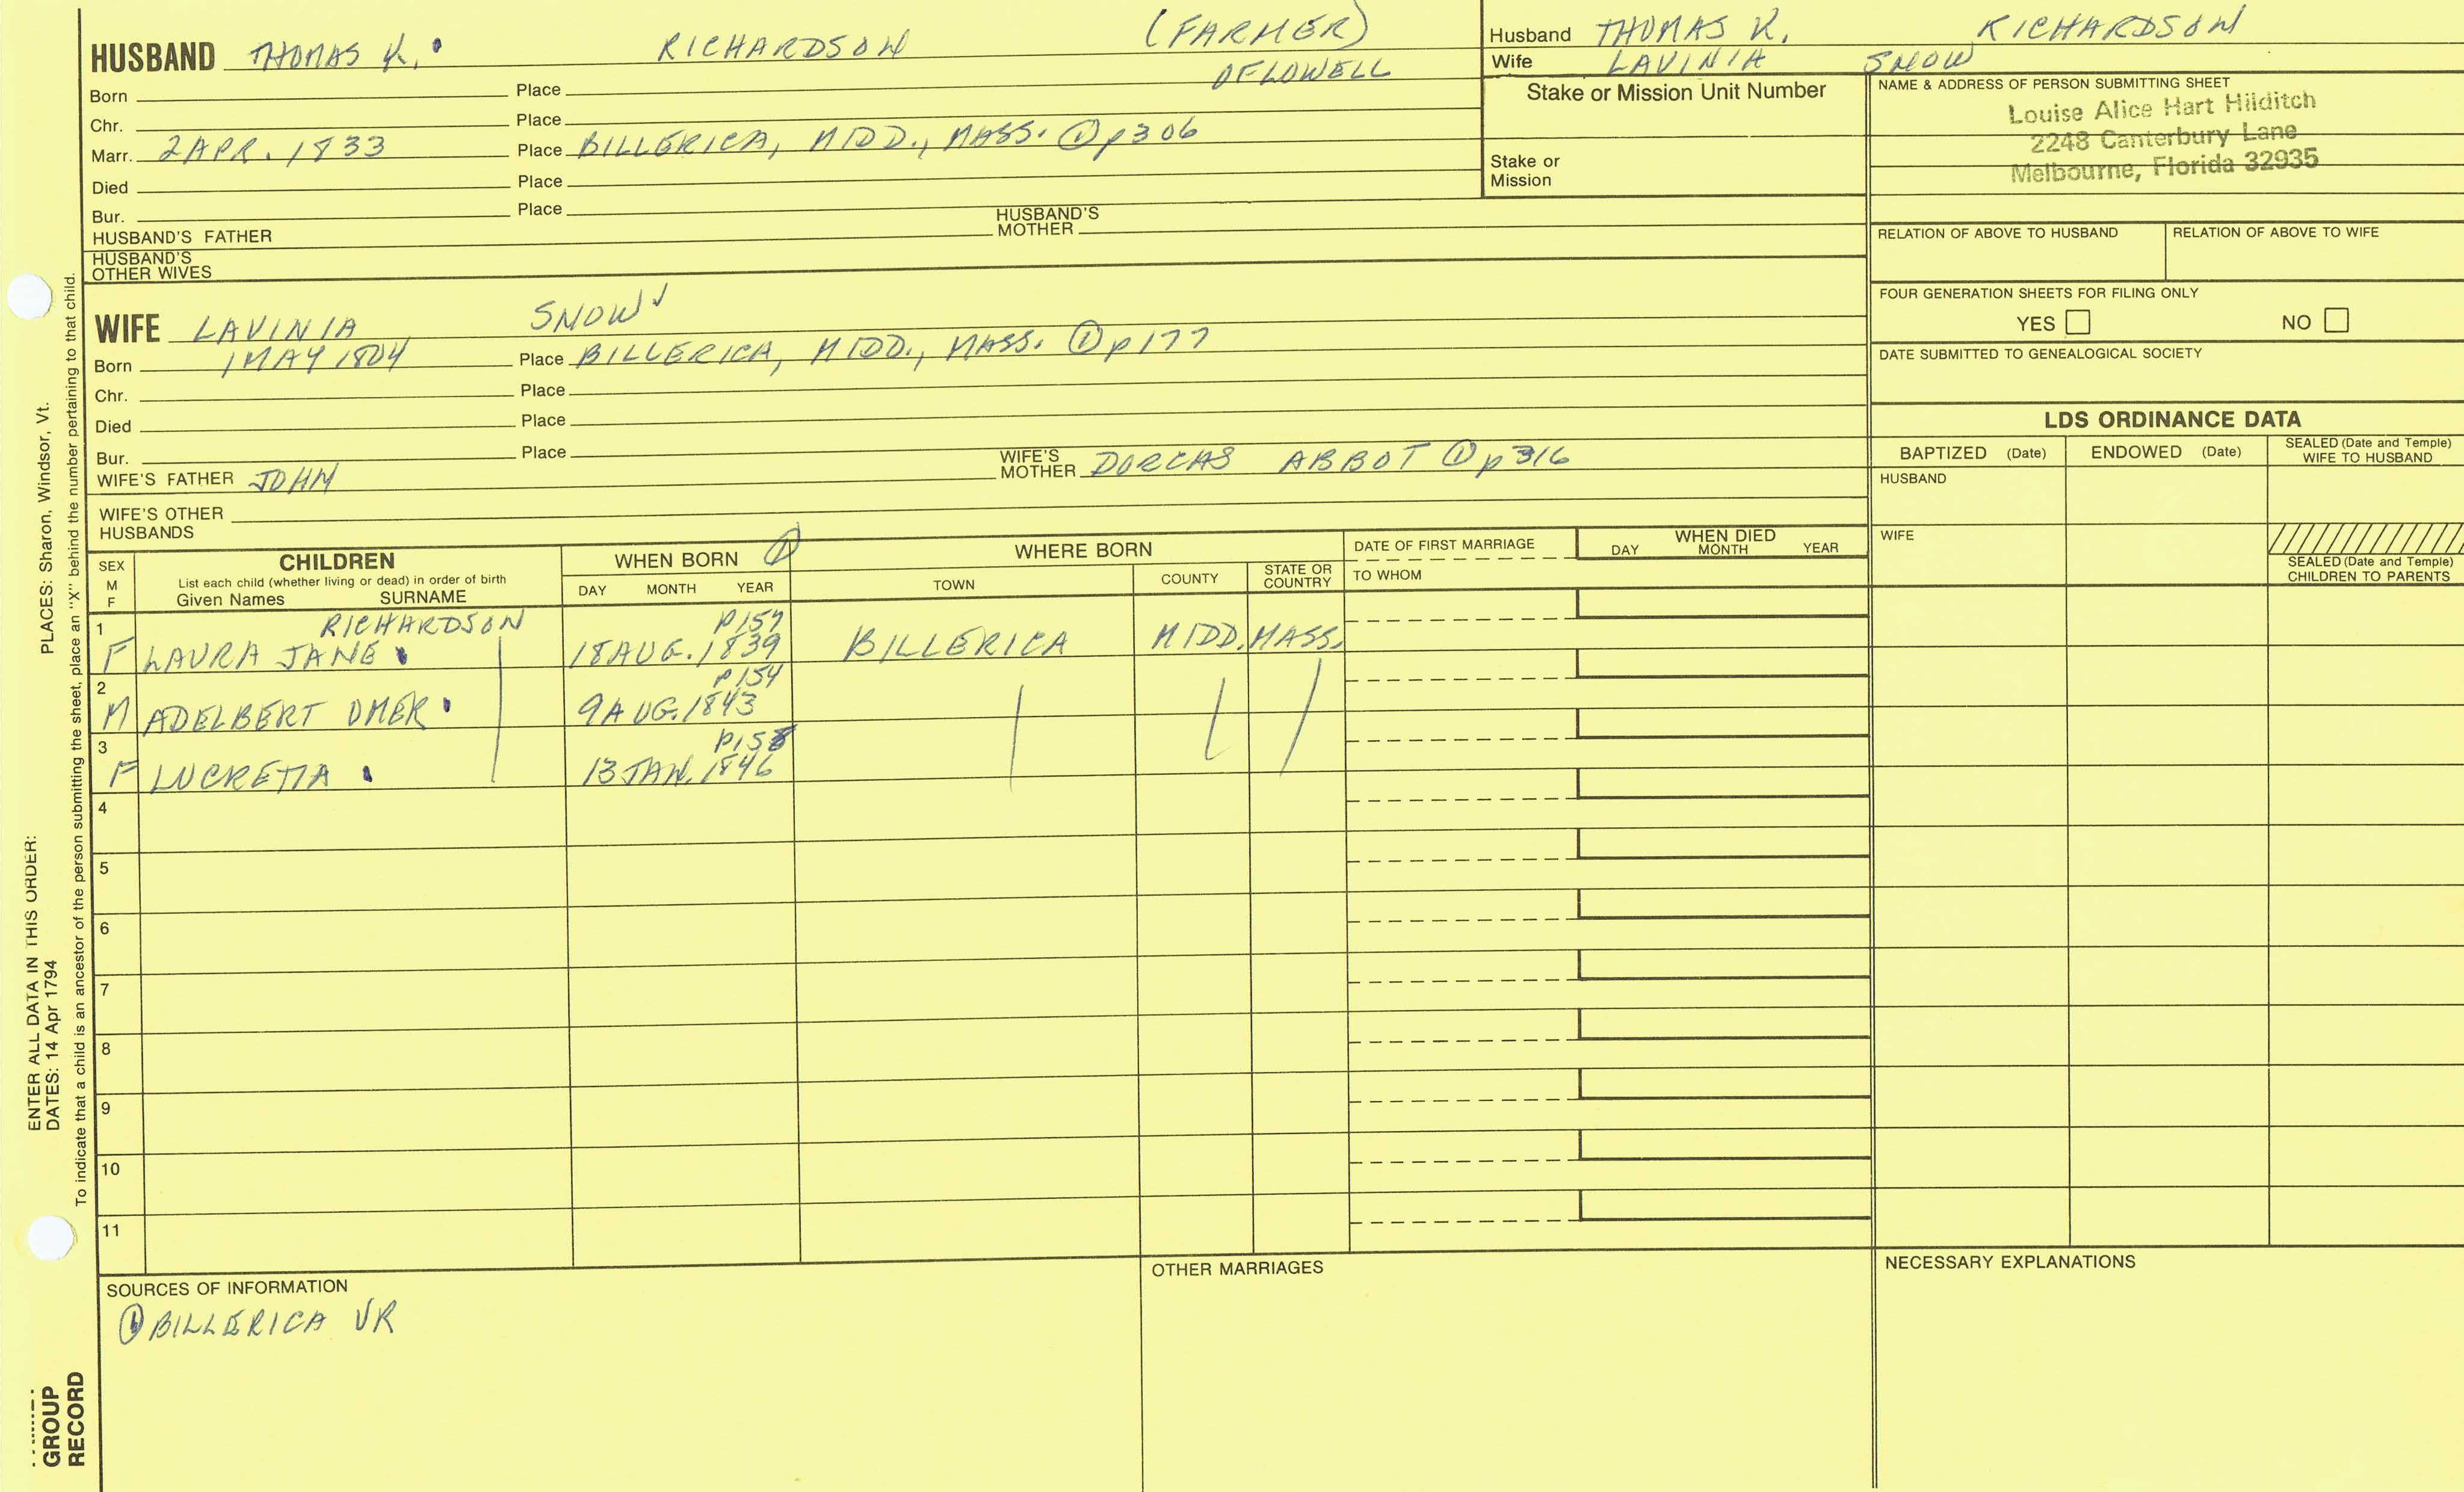 HUSBAND THOMAS K. RICHARDSON (FARMER) OF LOWELL
Born Place
Chr. Place
Marr. 2 APR. 1833 Place BILLERICA, MIDD., MASS. ① p306
Died Place
Bur. Place
HUSBAND'S FATHER HUSBAND'S MOTHER
HUSBAND'S OTHER WIVES
Husband THOMAS K. RICHARDSON
Wife LAVINIA SNOW
Stake or Mission Unit Number
Stake or Mission
NAME & ADDRESS OF PERSON SUBMITTING SHEET
Louise Alice Hart Hilditch
2248 Canterbury Lane
Melbourne, Florida 32935
RELATION OF ABOVE TO HUSBAND RELATION OF ABOVE TO WIFE
FOUR GENERATION SHEETS FOR FILING ONLY
YES NO
DATE SUBMITTED TO GENEALOGICAL SOCIETY
WIFE LAVINIA SNOW ✓
Born 1 MAY 1804 Place BILLERICA, MIDD., MASS. ① p177
Chr. Place
Died Place
Bur. Place
WIFE'S FATHER JOHN WIFE'S MOTHER DORCAS ABBOT ① p316
WIFE'S OTHER HUSBANDS
LDS ORDINANCE DATA
BAPTIZED (Date) ENDOWED (Date) SEALED (Date and Temple) WIFE TO HUSBAND
HUSBAND
WIFE
SEALED (Date and Temple) CHILDREN TO PARENTS
SEX M F
CHILDREN
List each child (whether living or dead) in order of birth
Given Names SURNAME
WHEN BORN ①
DAY MONTH YEAR
WHERE BORN
TOWN COUNTY STATE OR COUNTRY
DATE OF FIRST MARRIAGE
TO WHOM
WHEN DIED
DAY MONTH YEAR
1 RICHARDSON P157
F LAURA JANE 18 AUG. 1839 BILLERICA MIDD. MASS.
2 P154
M ADELBERT OMER 9 AUG. 1843
3 P158
F LUCRETIA 13 JAN. 1846
4
5
6
7
8
9
10
11
SOURCES OF INFORMATION
① BILLERICA VR
OTHER MARRIAGES
NECESSARY EXPLANATIONS
ENTER ALL DATA IN THIS ORDER:
DATES: 14 Apr 1794 PLACES: Sharon, Windsor, Vt.
To indicate that a child is an ancestor of the person submitting the sheet, place an "X" behind the number pertaining to that child.
GROUP
RECORD